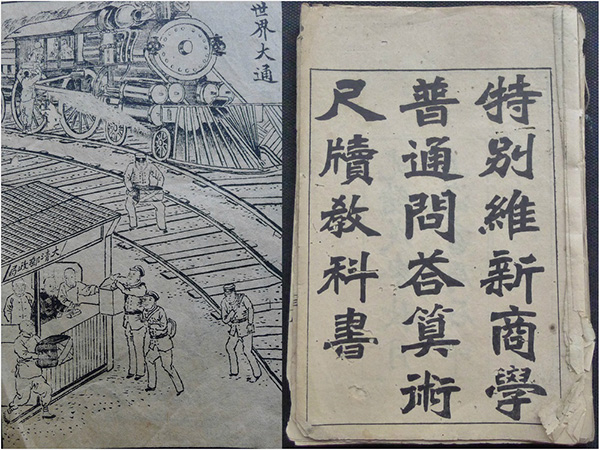 世界大通
特别維新商學
普通問答算術
尺牘教科書